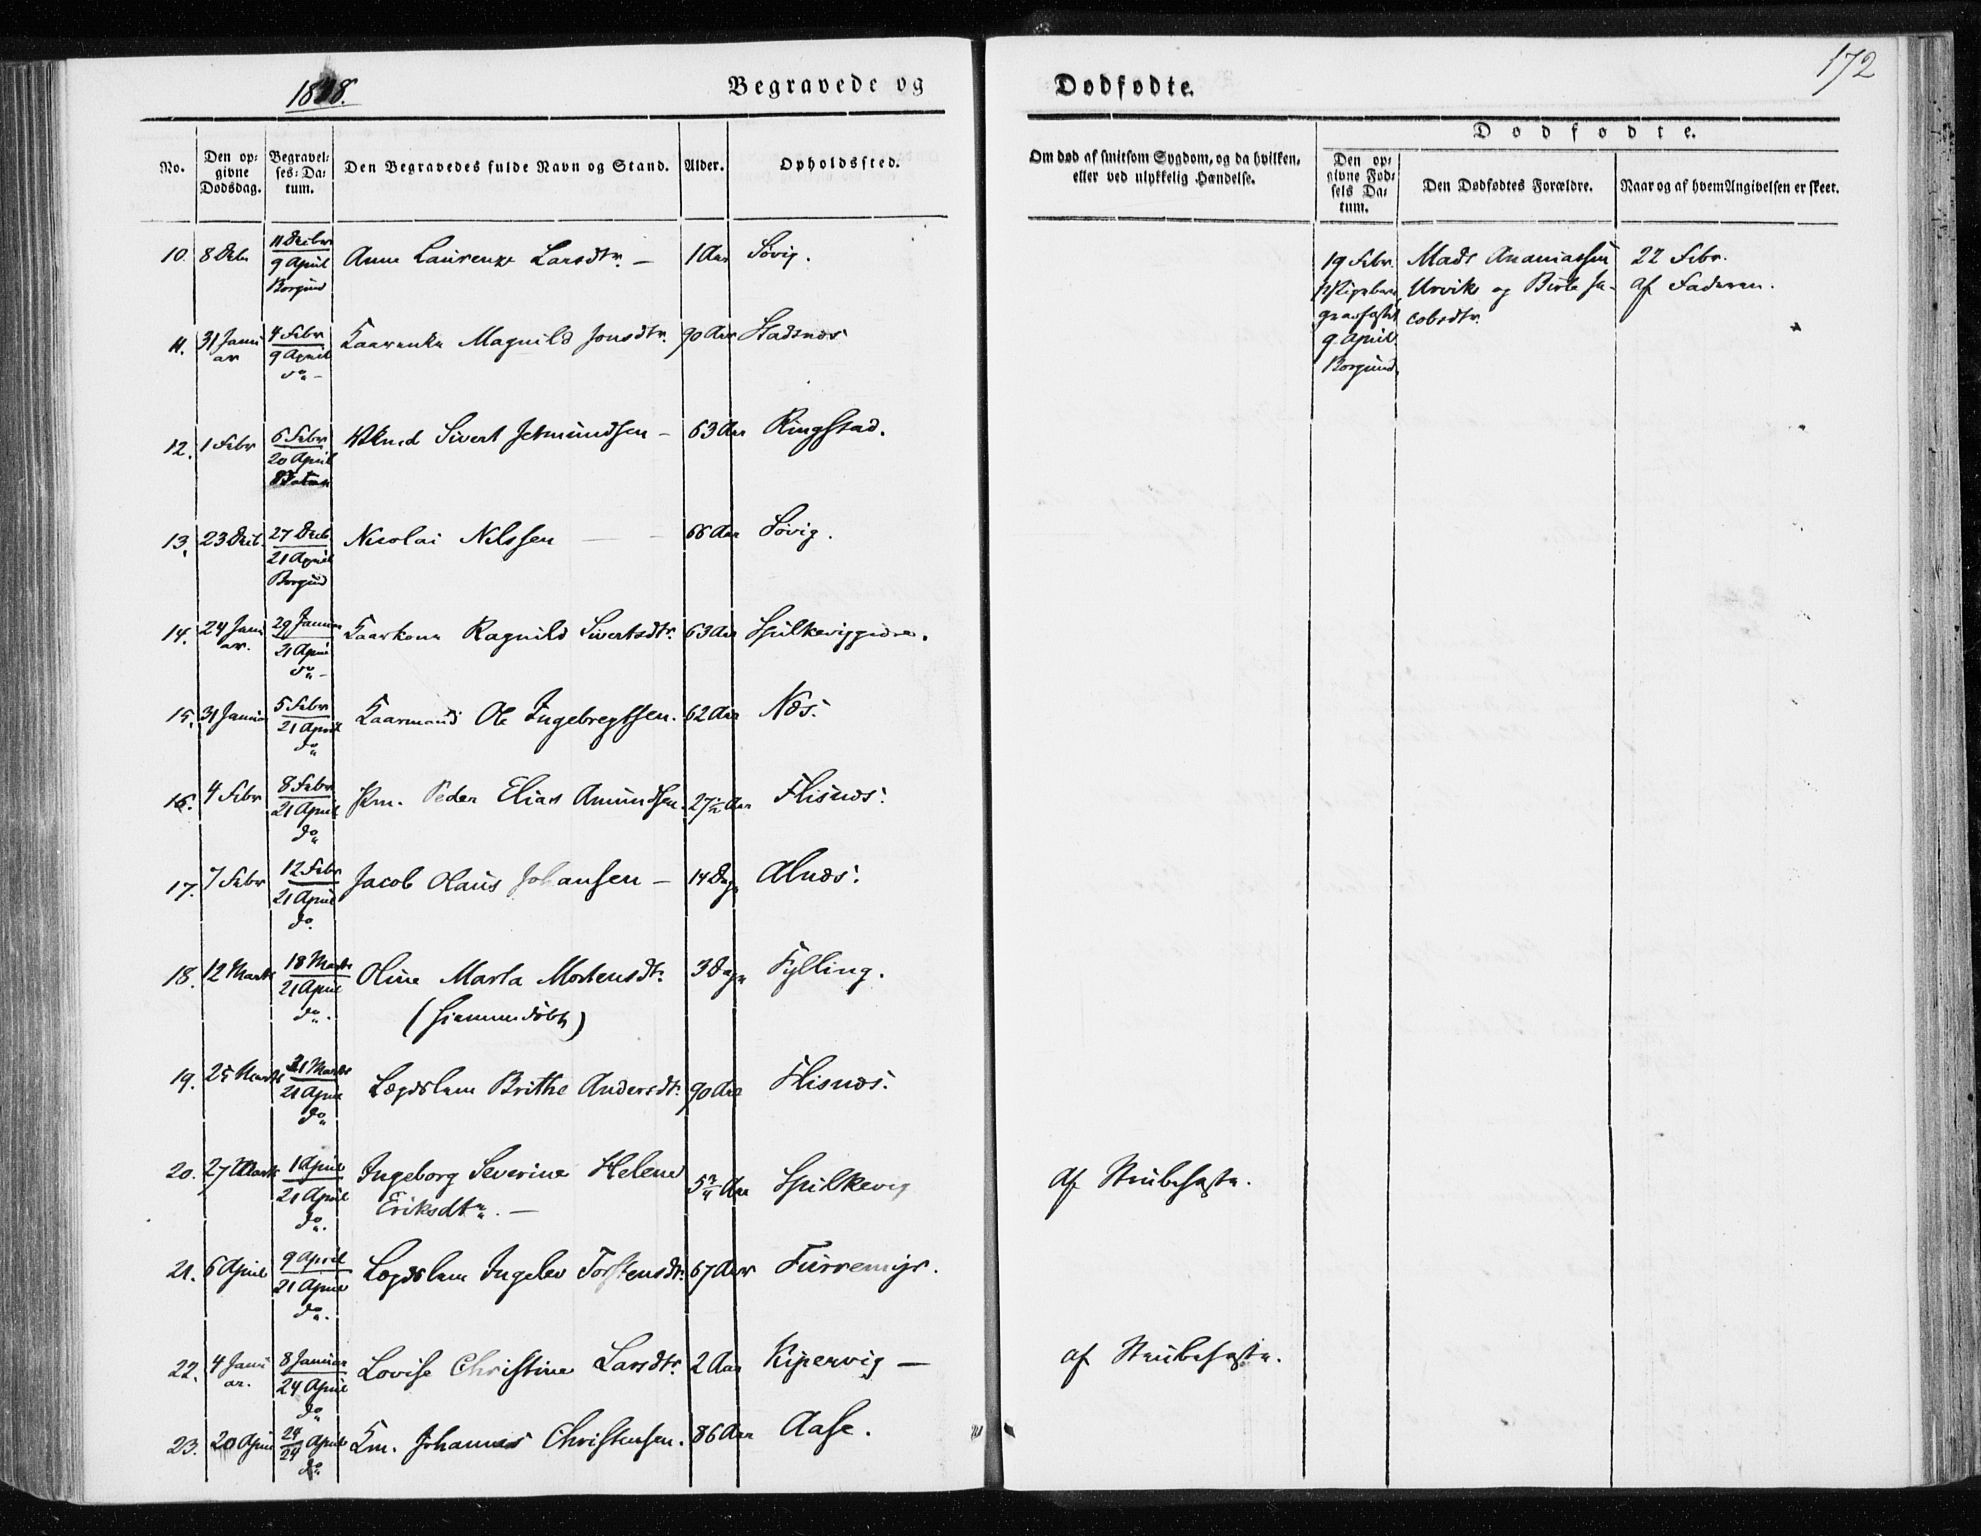 1848.
Begravede og
Dødfødte.
172
No.
Den op-
givne
Dødsdag.
Begravel-
ses-Da-
tum.
Den Begravedes fulde Navn og Stand.
Alder.
Opholdssted.
Om død af smitsom Sygdom, og da hvilken,
eller ved ulykkelig Hændelse.
Dødfødte.
Den op-
givne Fød-
sels Da-
tum.
Den Dødfødtes Forældre.
Naar og af hvem Angivelsen er skeet.
10. 8 Decbr 11 Decbr Anne Laurenze Larsdtr. — 1 Aar Søvig.
9 April
Borgund
19 Febr Mads Ananiassen 22 Febr.
Urvik og Birte Ja- af Faderen.
cobsdtr.
9 April
Borgund.
11. 31 Janu 4 Febr Magnild Jonsdtr. 90 Aar Stadsnæs
ar 9 April
do
12. 1 Febr 6 Febr Sivert Jetmundsen — 63 Aar Ringstad.
20 April
13. 23 Decb. 27 Decb. Nicolai Nilssen — 66 Aar Søvig.
21 April
Borgund
14. 24 Janu 29 Januar Kaarkone Ragnild Sivertsdtr. 63 Aar Spilkeviggidre.
ar. 21 April
do
15. 31 Januar 5 Febr Kaarmand Ole Ingebregtsen. 62 Aar Næs.
21 April
do
16. 4 Febr 8 Febr Peder Elias Amundsen. 27½ Aar Flisnæs.
21 April
do
17. 7 Febr 12 Febr Jacob Olaus Johansen — 14 Dage Alnæs.
21 April
do.
18. 12 Marts 18 Marts Oline Marta Mortensdtr. 3 Dage Fylling.
21 April
do. (hjemmedøbt)
19. 25 Marts 31 Marts Lægdslem Brithe Andersdtr. 90 Aar Flisnæs.
21 April
do
20. 27 Marts 1 April Ingeborg Severine Helene Aar Spilkevig af Strubehoste.
21 April Eriksdtr. —
do.
21. 6 April 9 April Lægdslem Ingelev Torstensdtr. 67 Aar Furremyr.
21 April
do.
22. 4 Janu 8 Januar Lovise Christine Larsdtr. 2 Aar Kipervig — af Strubehoste.
ar. 24 April
do
23. 20 April 24 April Km. Johannes Christensen. 86 Aar Aase.
24
do